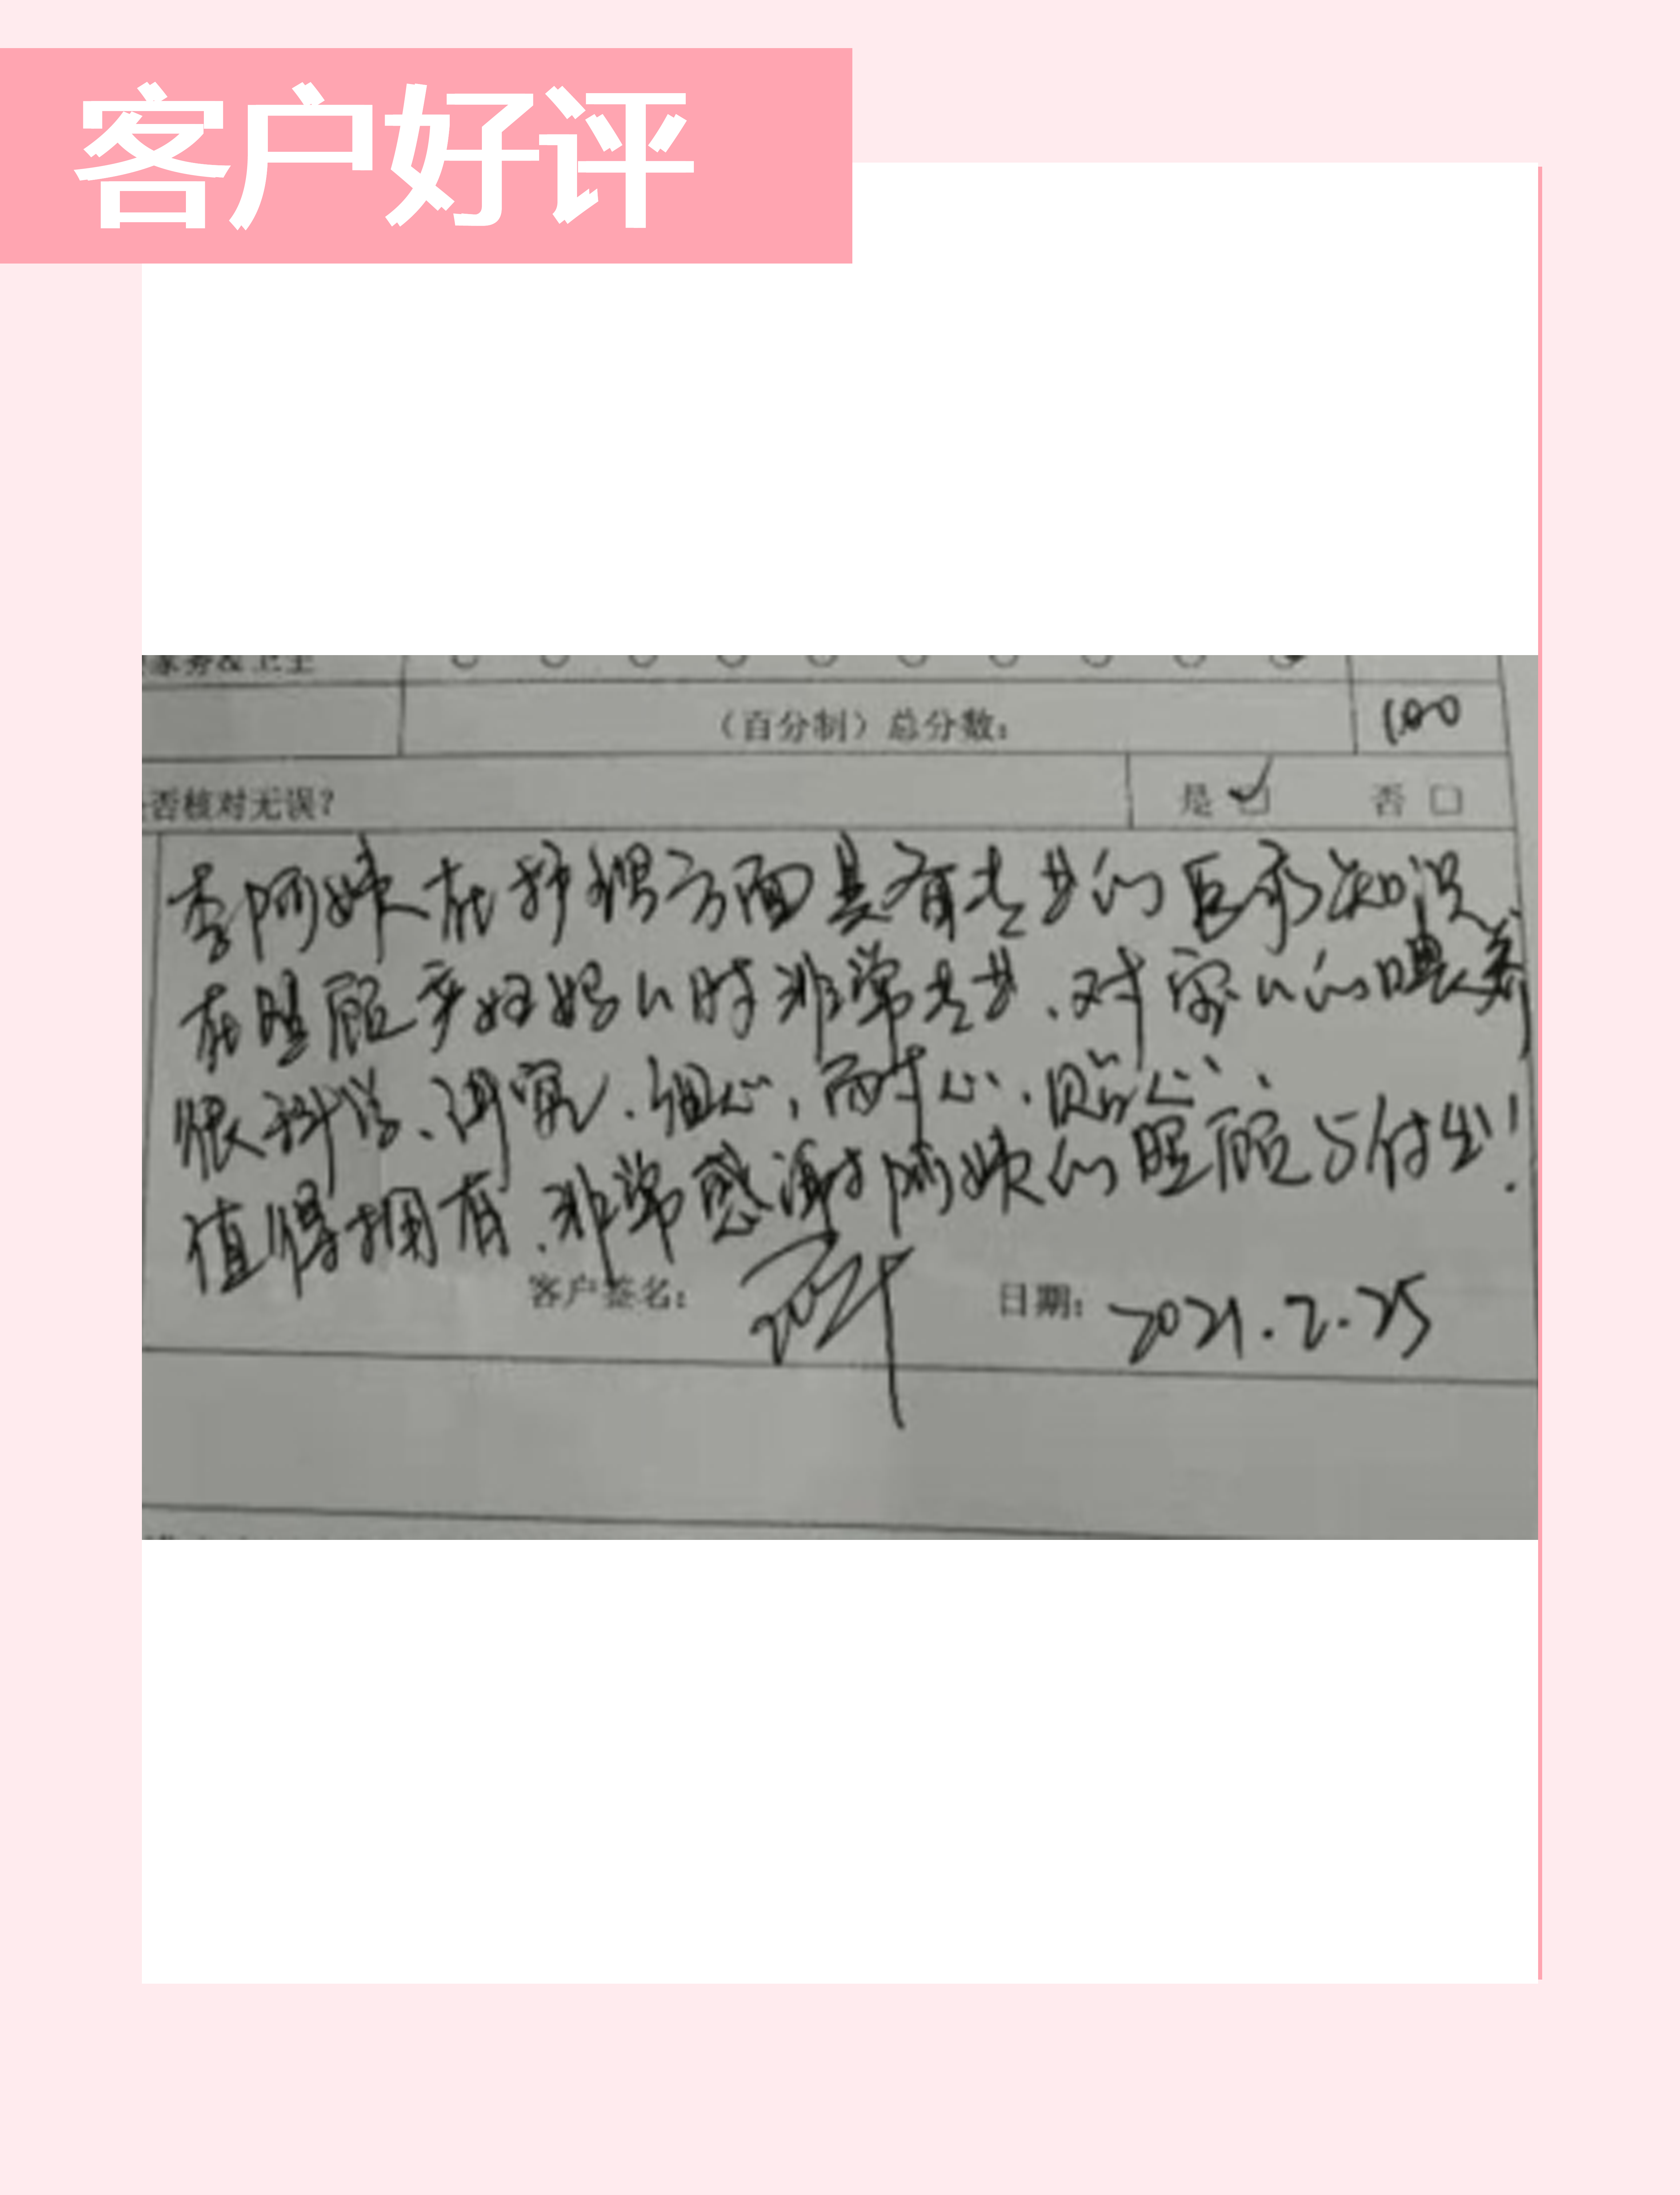 客户好评
家务&卫生
（百分制）总分数： 100
否核对无误？ 是 否
李阿姨在护理方面具有专业的医疗知识
在照顾产妇妈妈时非常专业、对宝宝的喂养
很科学、讲究、细心，耐心、贴心、
值得拥有、非常感谢阿姨的照顾与付出！
客户签名： 日期：2021.2.25